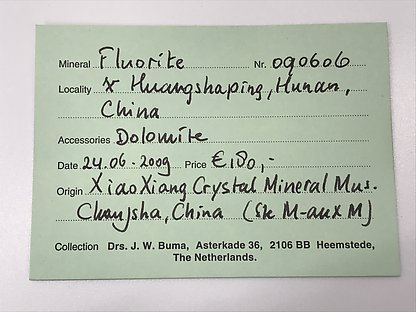 Mineral Fluorite Nr. 090606
Locality x Huangshaping, Hunan,
China
Accessories Dolomite
Date 24.06-2009 Price € 180,-
Origin XiaoXiang Crystal Mineral Mus.
Changsha, China
Collection Drs. J. W. Buma, Asterkade 36, 2106 BB Heemstede,
The Netherlands.